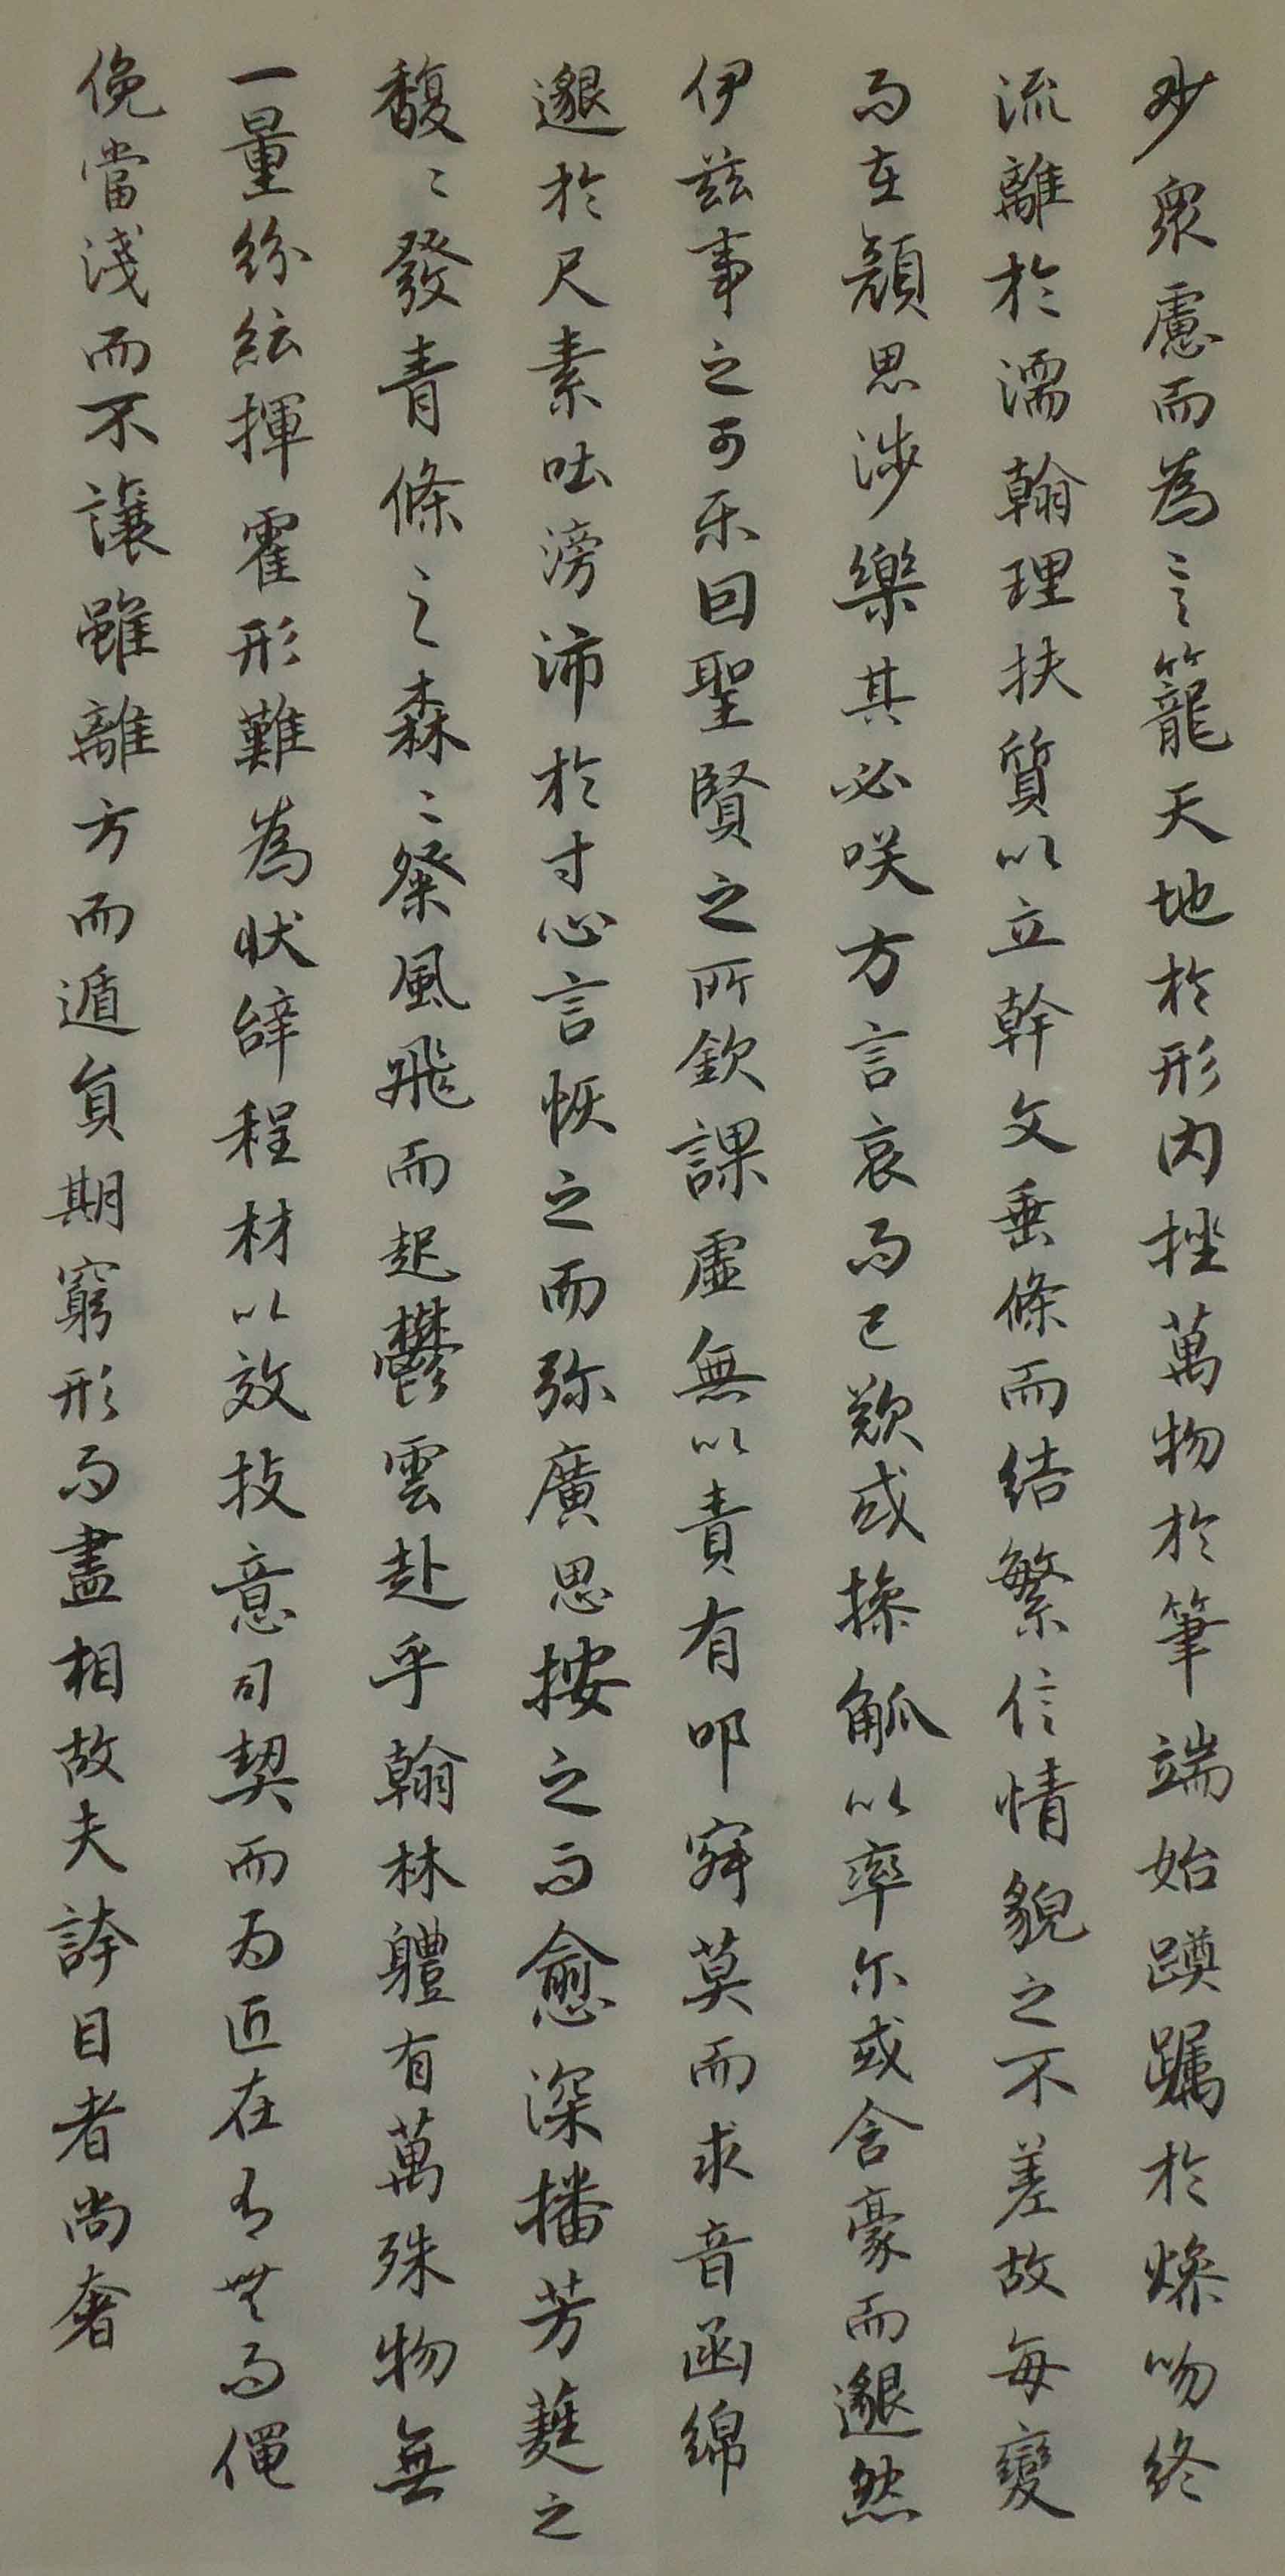 眇衆慮而為言籠天地於形內挫萬物於筆端始躑躅於燥吻終
流離於濡翰理扶質以立幹文垂條而結繁信情貌之不差故每變
而在顏思涉樂其必咲方言哀而已歎或操觚以率尔或含豪而邈然
伊茲事之可乐固聖賢之所欽課虛無以責有叩寂莫而求音函綿
邈於尺素吐滂沛於寸心言恢之而弥廣思按之而愈深播芳蕤之
馥〻發青條之森〻粲風飛而起鬱雲赴乎翰林軆有萬殊物無
一量紛紜揮霍形難為狀辞程材以效技意司契而为匠在有無而僶
俛當淺而不讓雖離方而遁負期窮形而盡相故夫誇目者尚奢